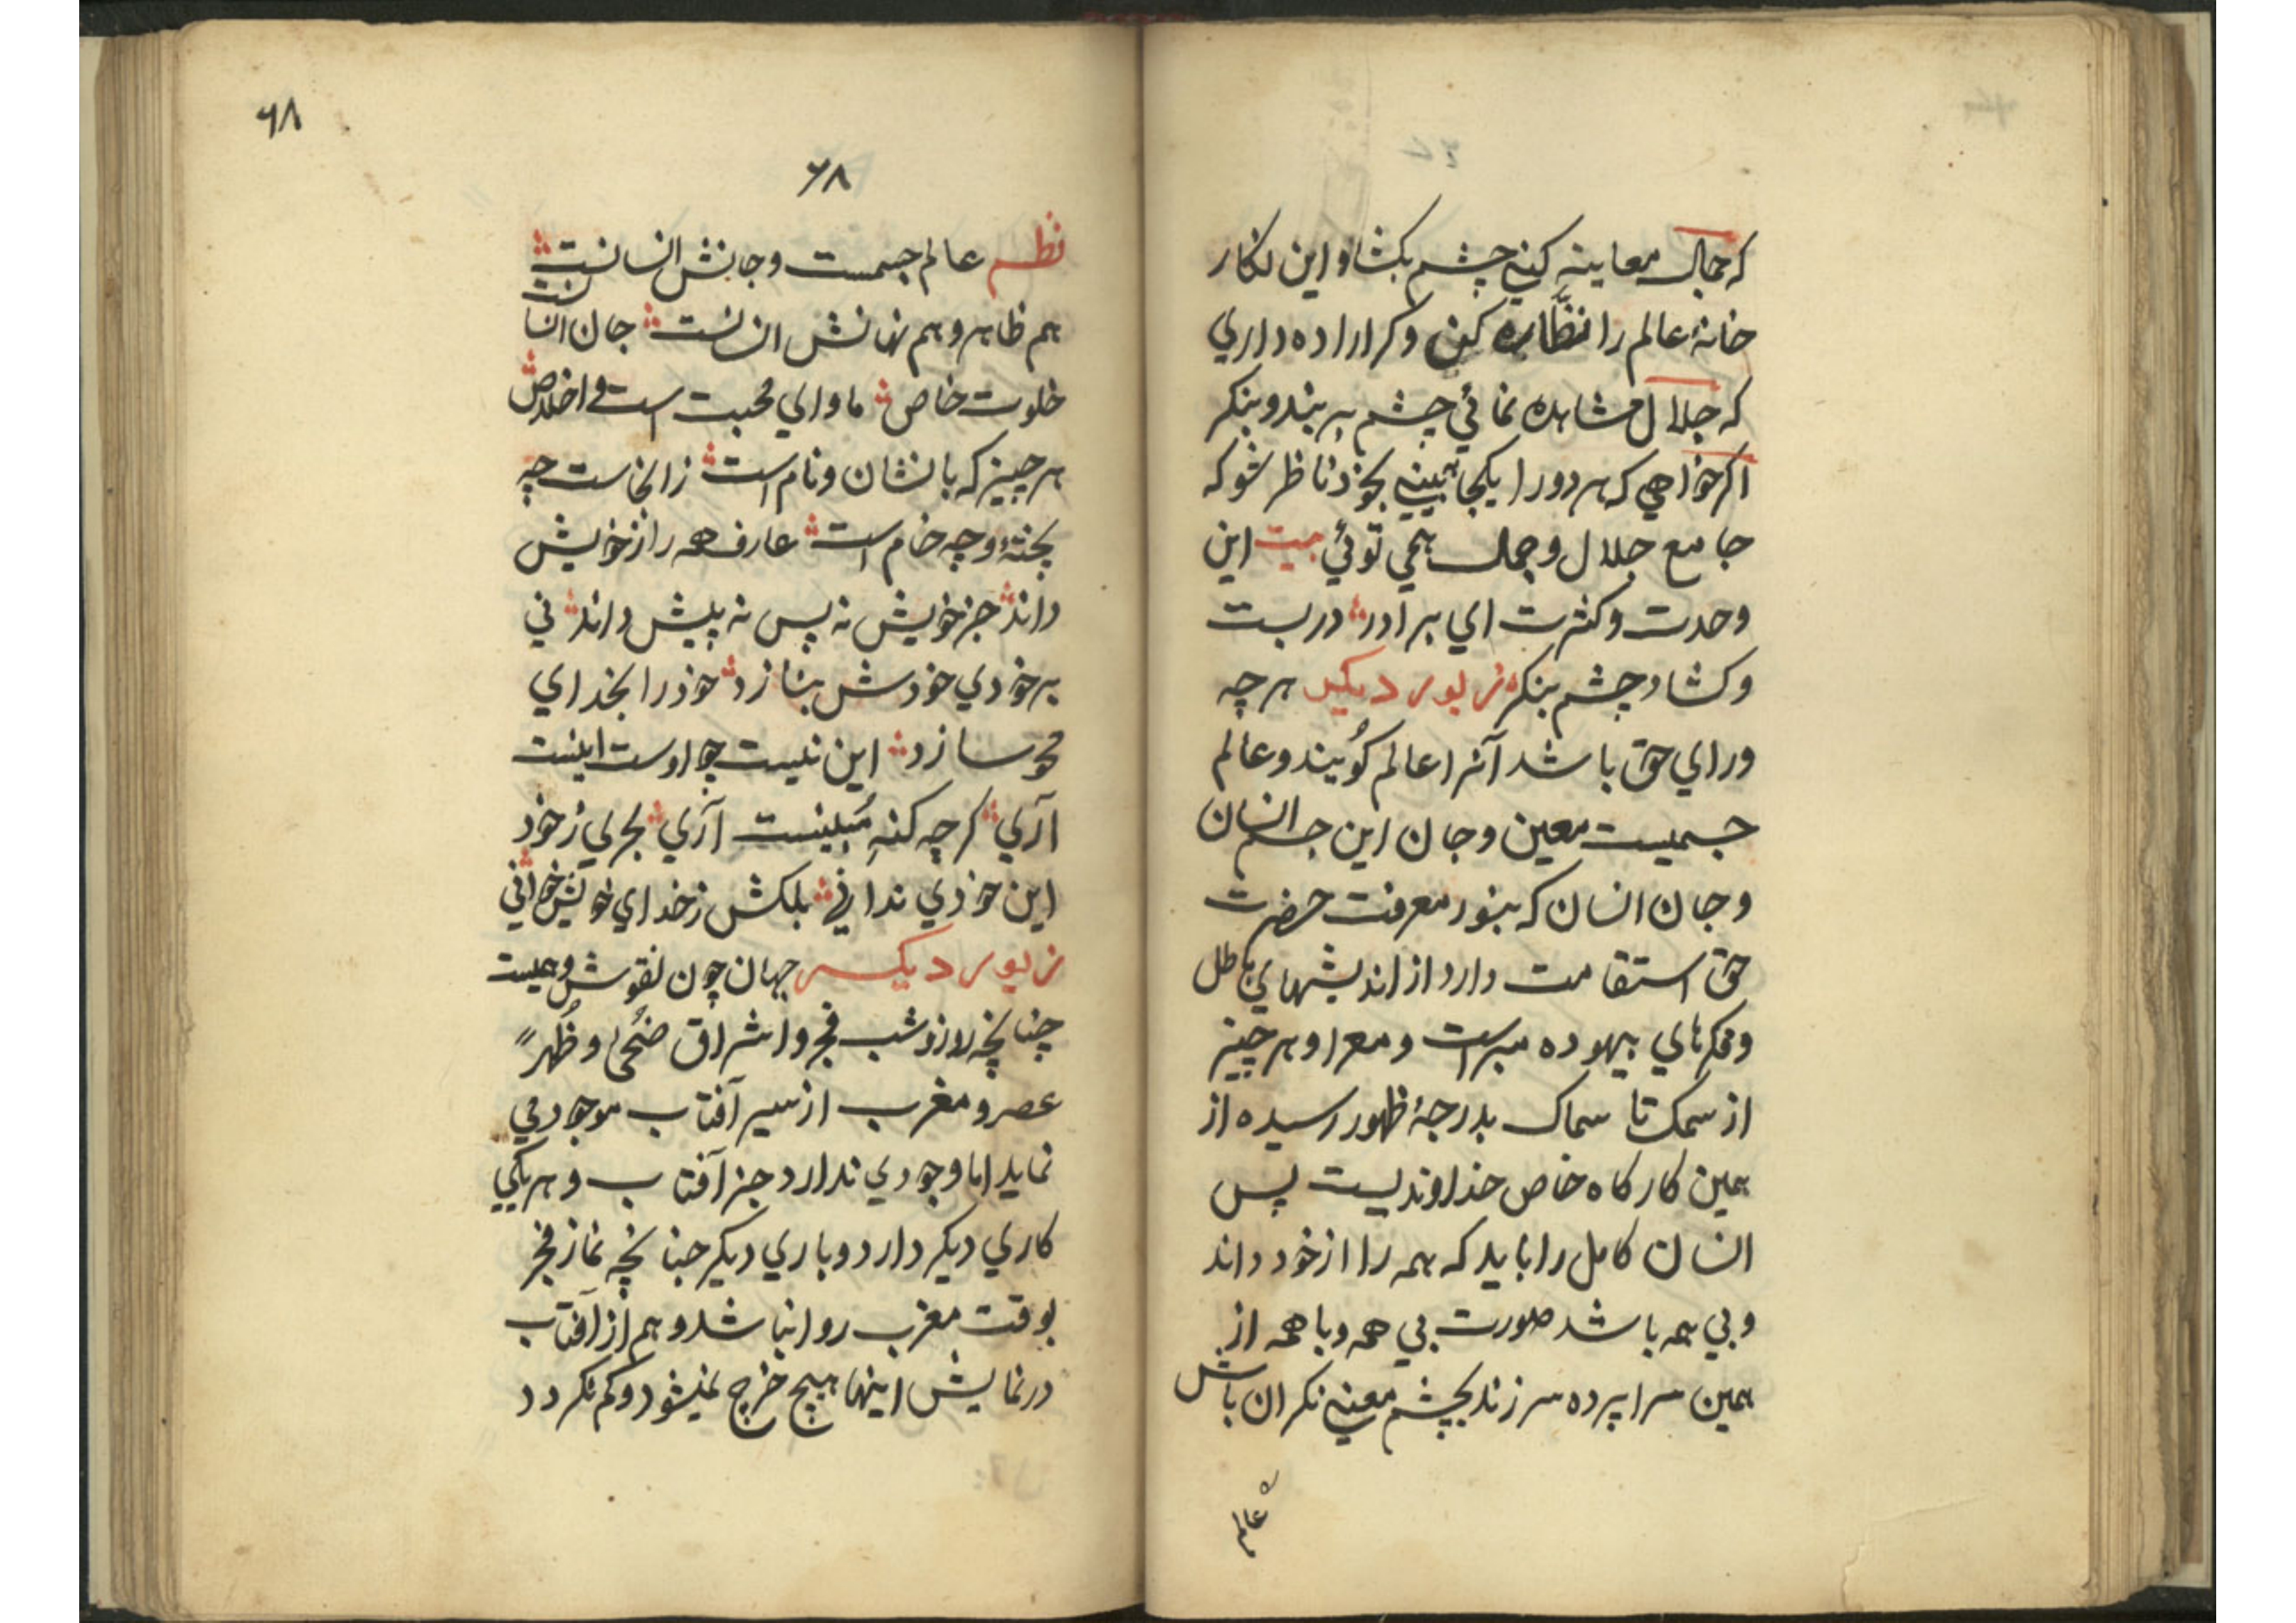 که جمال معاینه کنی چشم بکشا و این نکار
خانهٔ عالم را نظّاره کن وکر اراده داري
که جلال مشاهده نمائي چشم بر بند و بنکر
اکر خواهي که هر دو را یکجا بینی بخود ناظر شو که
جامع جلال و جمال همي توئي بیت این
وحدت و کثرت اي برادر در بست
و کشاد چشم بنکر زیور دیکر هر چه
وراي حق باشد آنرا عالم کُویند و عالم
جسمیست معین و جان این جسم انسان
و جان انسان که بنور معرفت حضرت
حق استقامت دارد از اندیشهاي باطل
و فکرهاي بیهوده مبراست و معرا و هر چیز
از سمک تا سماک بدرجهٔ ظهور رسیده از
همین کارکاه خاص خداوندیست پس
انسان کامل را باید که همه را از خود داند
و بي همه باشد صورت بي همه و با همه از
همین سراپرده سر زند بچشم معنی نکران باش
عالم
٦٨
٦٨
نظم عالم جسمست و جانش انسانست
هم ظاهر و هم نهانش انسانست جان انسانست
خلوت خاص ماواي محبت است و اخلاص
هر چیز که با نشان و نام است زانجاست چه
پخته و چه خام است عارف همه را ز خویش
داند جز خویش نه پس نه پیش داند ني
بر خودي خودش بنازد خود را بخداي
محو سازد این نیست چو اوست اینست
آري کر چه کنهِ مُبینست آري بحریي ز خود
این خودي نداني بلکش ز خداي خویش خواني
زیور دیکر جهان چون نقوش وهمیست
چنانچه روز و شب فجر و اشراق ضُحیٰ و ظُهر
عصر و مغرب از سیر آفتاب موجود مي
نماید اما وجودي ندارد جز آفتاب و هر یکي
کاري دیکر دارد و باري دیکر چنانچه نماز فجر
بوقت مغرب روا نباشد و هم از آفتاب
در نمایش اینها هیچ خرج نمیشود و کم نکردد